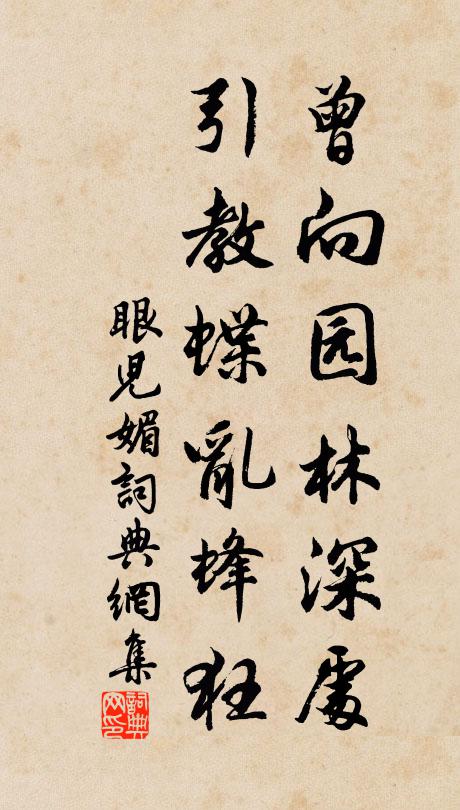 曾向园林深處
引教蝶亂蜂狂
眼兒媚詞典網集
詞典
网印